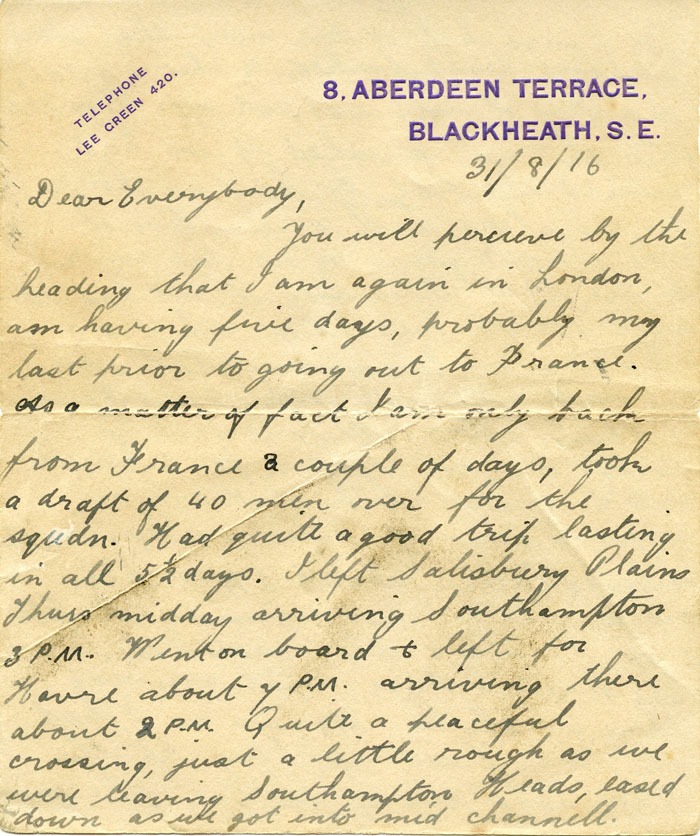 TELEPHONE
LEE GREEN 420.
8, ABERDEEN TERRACE,
BLACKHEATH, S.E.
31/8/16
Dear Everybody,
You will percieve by the
heading that I am again in London,
am having five days, probably my
last prior to going out to France.
As a matter of fact I am only back
from France a couple of days, took
a draft of 40 men over for the
squdn. Had quite a good trip lasting
in all 5½ days. I left Salisbury Plains
Thurs midday arriving Southampton
3 P.M. Went on board & left for
Havre about 7 P.M. arriving there
about 2 P.M. Quite a peaceful
crossing, just a little rough as we
were leaving Southampton Heads, eased
down as we got into mid channell.